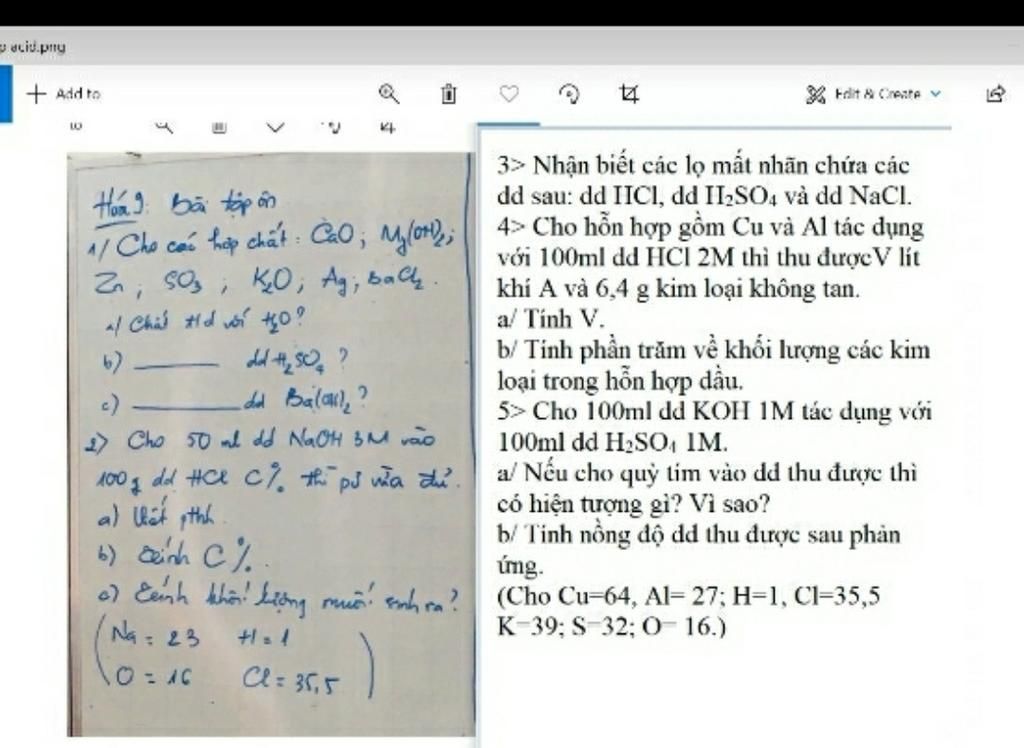 p acid.png
Add to
Edit & Create
to
Hoá 9: Bài tập ôn
1/ Cho các hợp chất: CaO; Mg(OH)₂;
Zn; SO₃; K₂O; Ag; BaCl₂.
a/ Chất t/d với H₂O?
b) ______ dd H₂SO₄?
c) ______ dd Ba(OH)₂?
2) Cho 50 ml dd NaOH 3M vào
100g dd HCl C% thì pứ vừa đủ.
a) Viết pthh.
b) Tính C%.
c) Tính khối lượng muối sinh ra?
(Na = 23 H = 1
O = 16 Cl = 35,5)
3> Nhận biết các lọ mất nhãn chứa các
dd sau: dd HCl, dd H₂SO₄ và dd NaCl.
4> Cho hỗn hợp gồm Cu và Al tác dụng
với 100ml dd HCl 2M thì thu được V lít
khí A và 6,4 g kim loại không tan.
a/ Tính V.
b/ Tính phần trăm về khối lượng các kim
loại trong hỗn hợp đầu.
5> Cho 100ml dd KOH 1M tác dụng với
100ml dd H₂SO₄ 1M.
a/ Nếu cho quỳ tím vào dd thu được thì
có hiện tượng gì? Vì sao?
b/ Tính nồng độ dd thu được sau phản
ứng.
(Cho Cu=64, Al= 27; H=1, Cl=35,5
K=39; S=32; O= 16.)